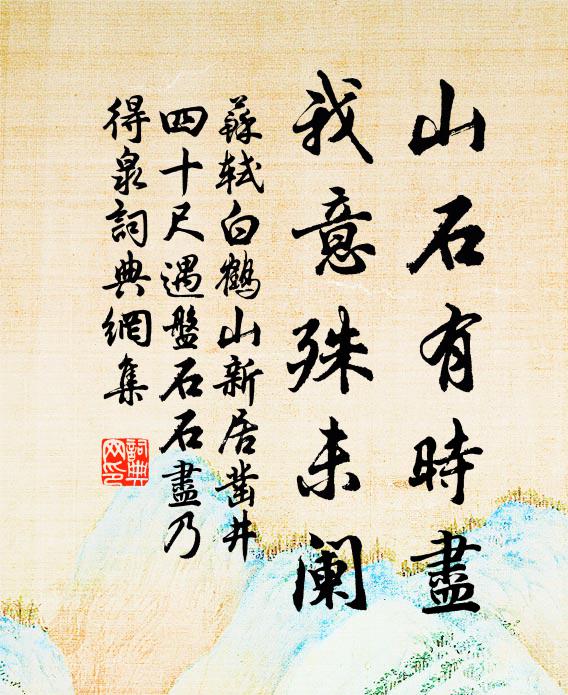 山石有時盡
我意殊未阑
蘇軾白鶴山新居凿井
四十尺遇盤石石盡乃
得泉詞典網集
詞典网印